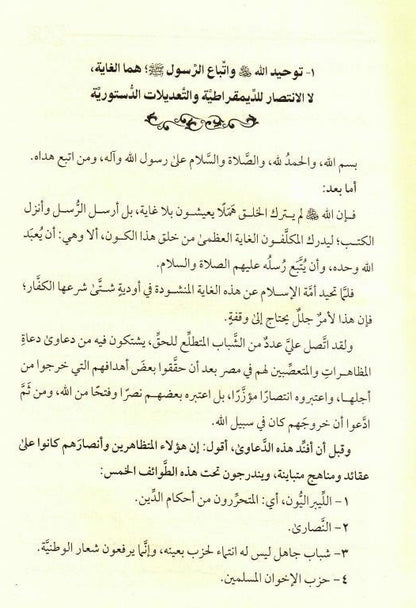 ١- توحيد الله ﷻ واتّباع الرّسول ﷺ؛ هما الغاية،
لا الانتصار للدِّيمقراطيَّة والتَّعديلات الدُّستوريَّة
بسم الله، والحمدُ لله، والصَّلاة والسَّلام على رسول الله وآله، ومن اتبع هداه.
أما بعد:
فـإن الله ﷻ لم يـترك الخلـق هَمَلًا يعيشـون بلا غاية، بل أرسـل الرُّسـل وأنزل
الكتـب؛ ليدرك المكلَّفـون الغاية العظمىٰ من خلق هذا الكـون، ألا وهي: أن يُعبَد
الله وحده، وأن يُتَّبَع رُسلُه عليهم الصلاة والسلام.
فلمَّا تحيد أمَّة الإسـلام عن هذه الغاية المنشـودة في أوديةٍ شـتَّىٰ شرعها الكفَّار؛
فإن هذا لأمرٌ جللٌ يحتاج إلىٰ وقفةٍ.
ولقد اتَّصل عليَّ عددٌ من الشَّباب المتطلِّع للحقِّ، يشتكون فيه من دعاوىٰ دعاةِ
المظاهـراتِ والمتعصِّبين لهم في مصر بعد أن حقَّقوا بعضَ أهدافهم التي خرجوا من
أجلهـا، واعتبروه انتصارًا مؤزَّرًا، بل اعتبره بعضهـم نصرًا وفتحًا من الله، ومن ثَمَّ
ادَّعوا أن خروجَهم كان في سبيل الله.
وقبل أن أفنِّد هذه الدَّعاوىٰ، أقول: إن هؤلاء المتظاهرين وأنصارَهم كانوا علىٰ
عقائد ومناهج متباينة، ويندرجون تحت هذه الطَّوائف الخمس:
١- اللِّيبراليُّون، أي: المتحرِّرون من أحكام الدِّين.
٢- النَّصارىٰ.
٣- شباب جاهل ليس له انتماء لحزب بعينه، وإنَّما يرفعون شعار الوطنيَّة.
٤- حزب الإخوان المسلمين.